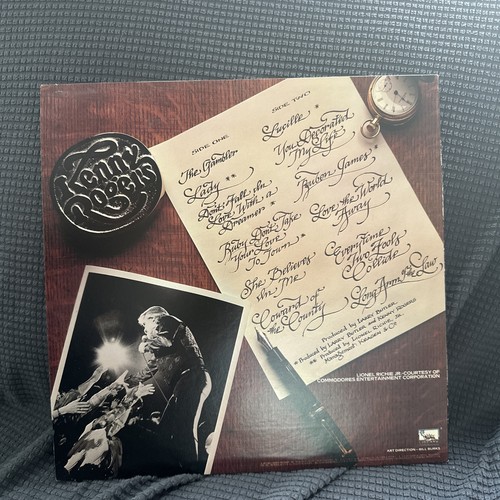 Kenny
Rogers
SIDE ONE
The Gambler
Lady **
Don't Fall In
Love With a
Dreamer *
Ruby Don't Take
Your Love
To Town *
She Believes
In Me
Coward of
the County
SIDE TWO
Lucille *
You Decorated
My Life
Reuben James *
Love the World
Away
Every time
Two Fools
Collide
Long Arm of the Law
* Produced by LARRY BUTLER
Produced by LARRY BUTLER and KENNY ROGERS
** Produced by LIONEL RICHIE, JR.
Management: KRAGEN & CO.
LIONEL RICHIE JR.-COURTESY OF
COMMODORES ENTERTAINMENT CORPORATION
ART DIRECTION - BILL BURKS